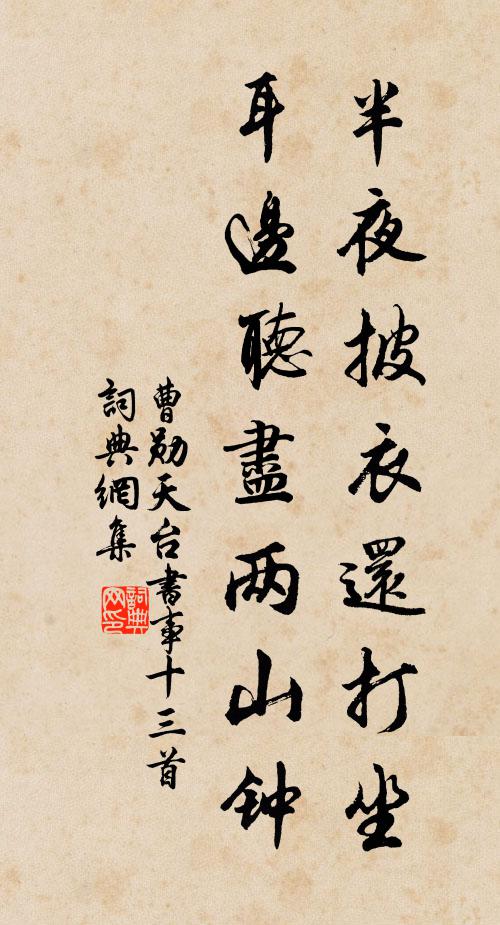 半夜披衣還打坐
耳邊聽盡两山钟
曹勛天台書事十三首
詞典網集
詞典
网印